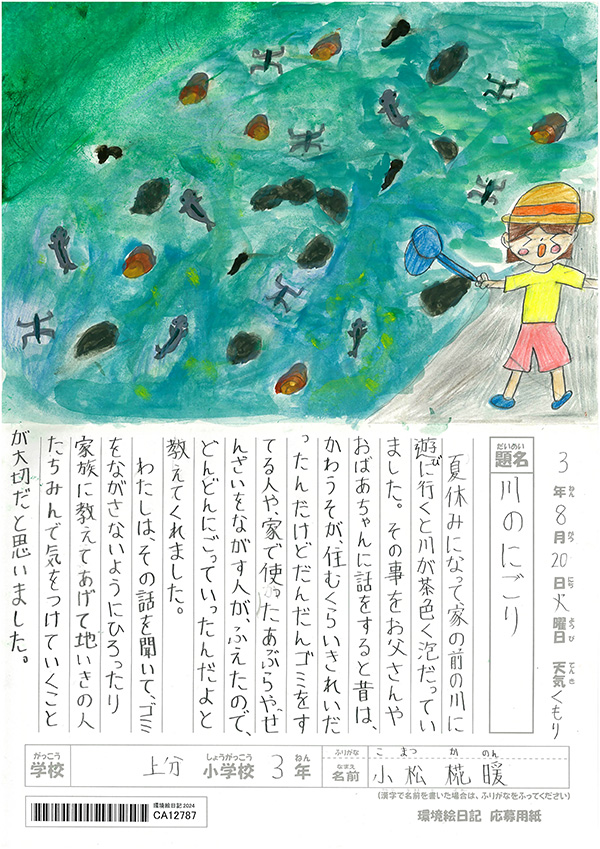 3年8月20日火曜日 天気くもり
ねん がつ にち ようび てんき
だいめい
題名
川のにごり
夏休みになって家の前の川に
遊びに行くと川が茶色く泡だってい
ました。その事をお父さんや
おばあちゃんに話をすると昔は、
かわうそが、住むくらいきれいだ
ったんだけどだんだんゴミをす
てる人や、家で使ったあぶらや、せ
んざいをながす人が、ふえたので、
どんどんにごっていったんだよと
教えてくれました。
わたしは、その話を聞いて、ゴミ
をながさないようにひろったり
家族に教えてあげて地いきの人
たちみんなで気をつけていくこと
が大切だと思いました。
がっこう しょうがっこう ねん
学校 上分 小学校 3年
ふりがな こまつ かのん
なまえ
名前 小松 椛暖
(漢字で名前を書いた場合は、ふりがなをふってください)
環境絵日記2024
CA12787
環境絵日記 応募用紙